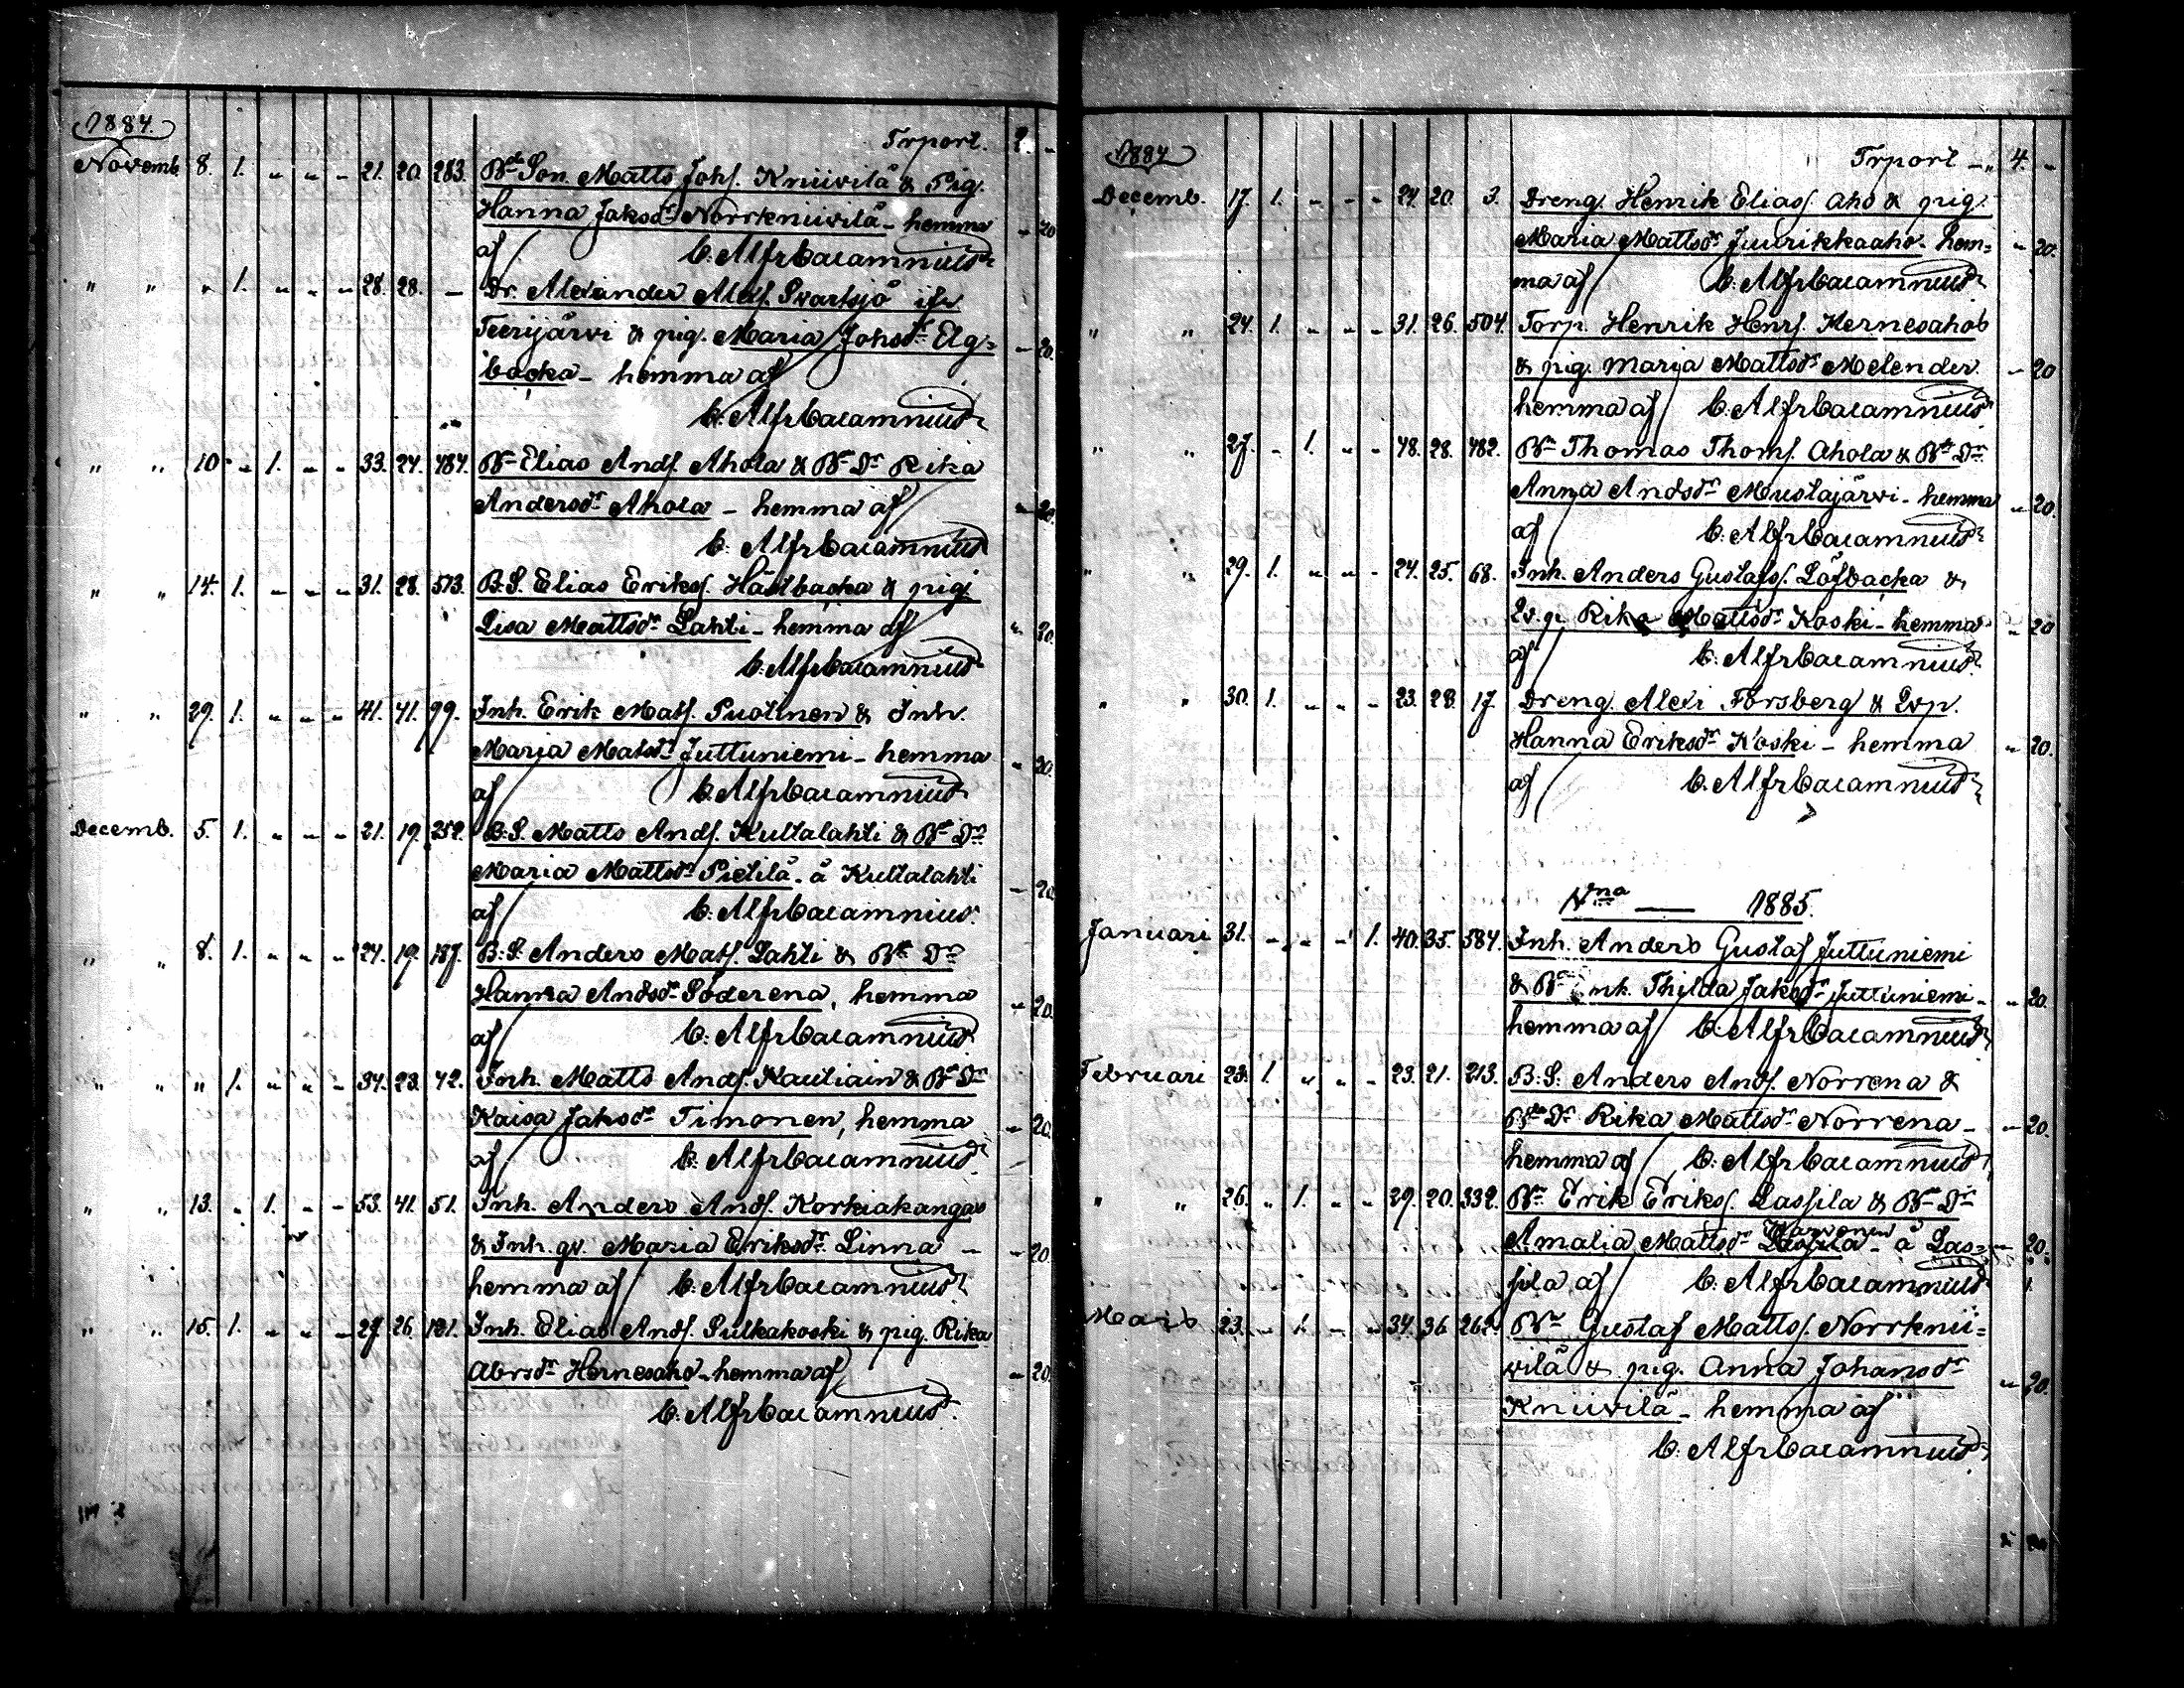 1884.
Trport. 2. -
Novemb. 8. 1. " " " 21. 20. 283. Bde Son Matts Johs. Kniivilä & Pig.
Hanna Jaksdr Norrkniivilä - hemma - 20
af C: Alfr Cacamnius
" " " 1. " " " 28. 28. - Dr. Alexander Alexs. Svartsjö ifr
Teerijärvi & pig. Maria Johsdr Elg= - 20.
backa - hemma af
C: Alfr Cacamnius
" " 10 " 1. " " 33. 24. 484. Bn Elias Ands. Ahola & Bn Dr Rika
Andersdr Ahola - hemma af - 20.
C: Alfr Cacamnius
" " 14. 1. " " " 31. 28. 513. B.S. Elias Eriks. Hästbacka & pig.
Lisa Mattsdr Lahti - hemma af " 20.
C: Alfr Cacamnius
" " 29. 1. " " " 41. 41. 99. Inh. Erik Mats. Puotinen & Inh.
Maria Matsdr Juttuniemi - hemma - 20.
af C. Alfr Cacamnius
Decemb. 5. 1. " " " 21. 19. 252. B.S. Matts Ands. Kultalahti & Bn Dr
Maria Mattsdr Pietilä - å Kultalahti - 20
af C: Alfr Cacamnius
" " 8. 1. " " " 24. 19. 187. B.S. Anders Mats. Lahti & Bn Dr
Hanna Andsdr Söderena, hemma - 20.
af C: Alfr Cacamnius
" " " 1. " " " 34. 23. 42. Inh. Matts Ands. Kautiain & Bn Dr
Kaisa Jaksdr Timonen, hemma - 20.
af C: Alfr Cacamnius
" " 13. " 1. " " 53. 41. 51. Inh. Anders Ands. Korkiakangas
& Inh. qv. Maria Eriksdr Linna - - 20.
hemma af C: Alfr Cacamnius
" " 15. 1. " " " 27 26. 181. Inh. Elias Ands. Sulkakoski & pig. Rika
Abrsdr Hernesaho - hemma af - 20.
C: Alfr Cacamnius.
1884
Trport - " 4. -
Decemb. 17. 1. " " " 24. 20. 3. Dreng. Henrik Elias. Aho & pig.
Maria Mattsdr Juurikkaaho - hem= " 20.
ma af C: Alfr Cacamnius
" " 24. 1. " " " 31. 26. 504. Torp. Henrik Henrs. Hernesaho
& pig. Maria Mattsdr Melender - 20
hemma af C: Alfr Cacamnius
" " 27. " 1. " " 48. 28. 482. Bn Thomas Thoms. Ahola & Bn Dr
Anna Andsdr Mustajärvi - hemma " 20.
af C: Alfr Cacamnius
" " 29. 1. " " " 24. 25. 68. Inh. Anders Gustafs. Löfbacka &
Rika Mattsdr Koski - hemma " 20
af C: Alfr Cacamnius
" " 30. 1. " " " 23. 28. 17. Dreng. Alexi Forsberg &
Hanna Eriksdr Koski - hemma " 20.
af C. Alfr Cacamnius
1885.
Januari 31. " " " 1. 40. 35. 584. Inh. Anders Gustaf Juttuniemi
& Thilda Jaksdr Juttuniemi - - 20.
hemma af C: Alfr Cacamnius
Februari 23. 1. " " " 23. 21. 213. B.S. Anders Ands. Norrena &
Bde Dr Rika Mattsdr Norrena - - 20.
hemma af C: Alfr Cacamnius
" " 26. " 1. " " 29. 20. 332. Bn Erik Eriks. Lassila & Bn Dr
Amalia Mattsdr - å Las= - 20.
sila af C: Alfr Cacamnius
Mars 23. " 1. " " 34. 36. 262 Bn Gustaf Matts. Norrknii=
vilä & pig. Anna Johansdr " 20.
Kniivilä - hemma af
C: Alfr Cacamnius